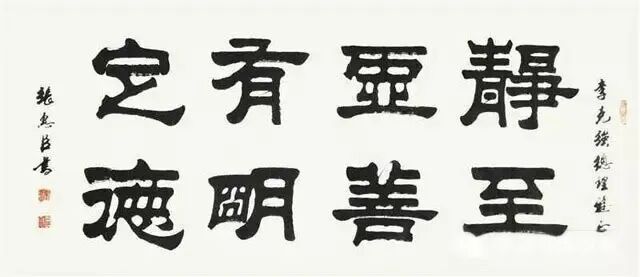 李克強總理雅正
靜虛有定
至善明德
張惠臣書